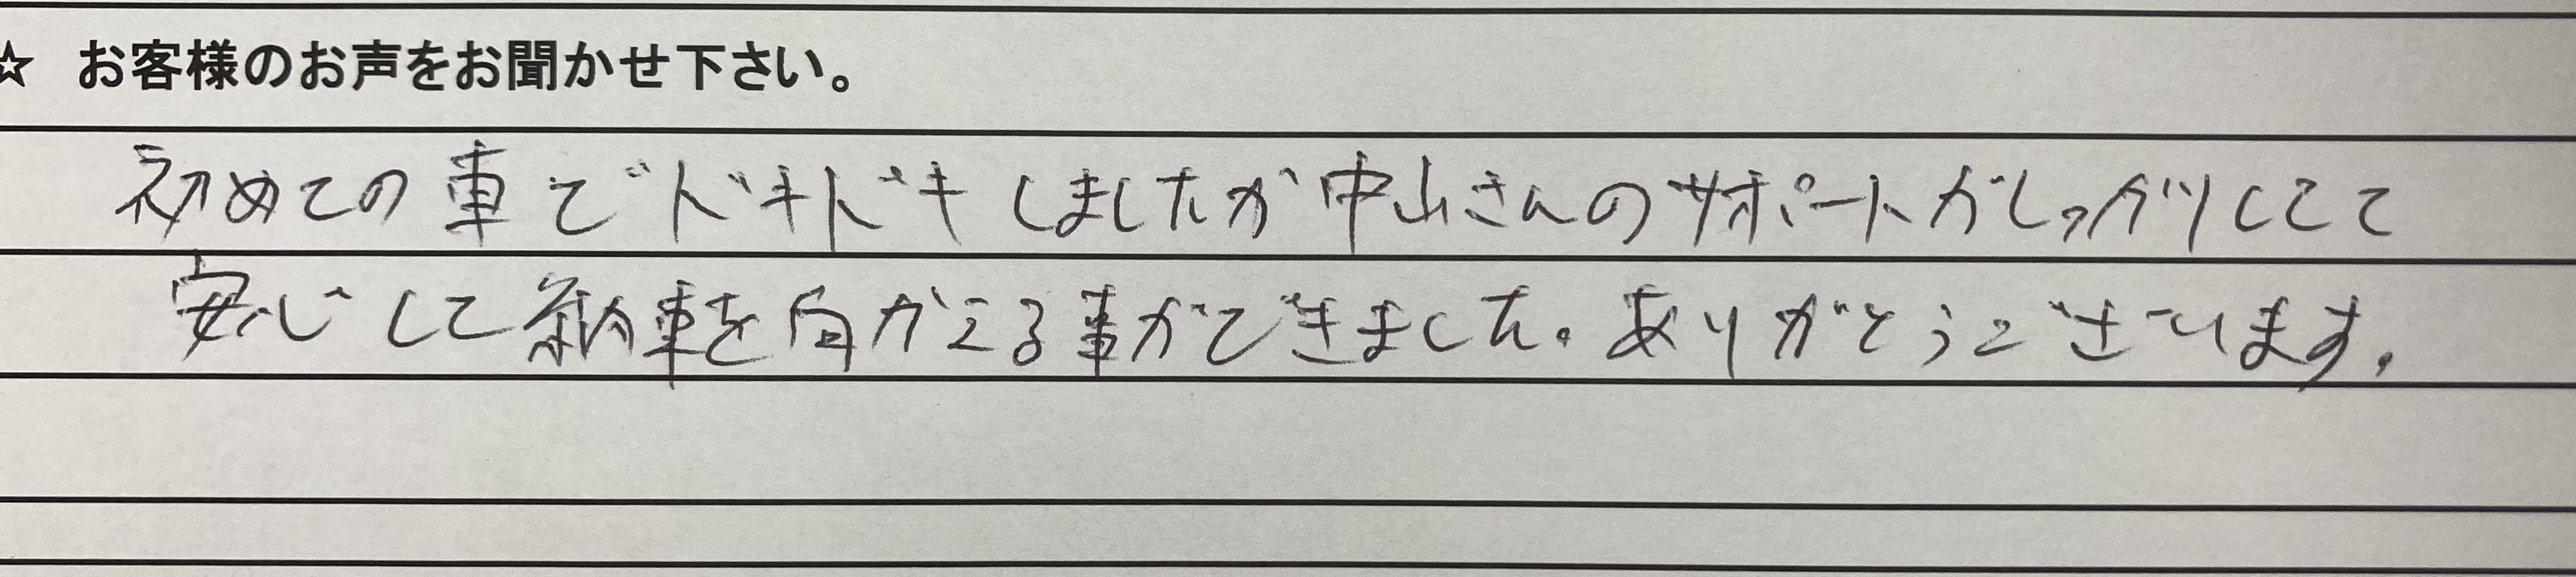 ☆ お客様のお声をお聞かせ下さい。
初めての車でドキドキしましたが中山さんのサポートがしっかりしてて
安心して納車を向かえる事ができました。ありがとうございます。